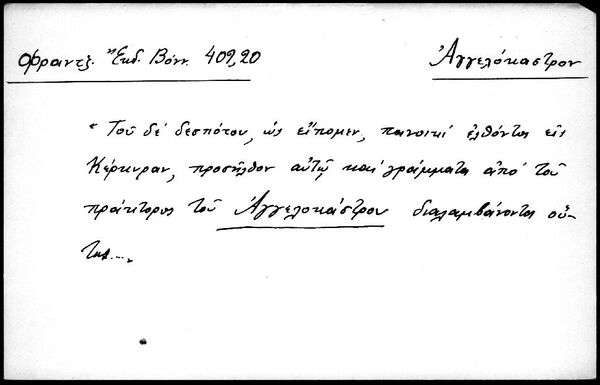 Φραντζ. Ἔκδ. Βόνν. 409,20 Ἀγγελόκαστρον
"Τοῦ δέ δεσπότου, ὡς εἴπομεν, πανοικί ἐλθόντος εἰς
Κέρκυραν, προσῆλθον αὐτῷ καί γράμματα ἀπό τοῦ
πράκτορος τοῦ Ἀγγελοκάστρου διαλαμβάνοντα οὕ-
τως....,